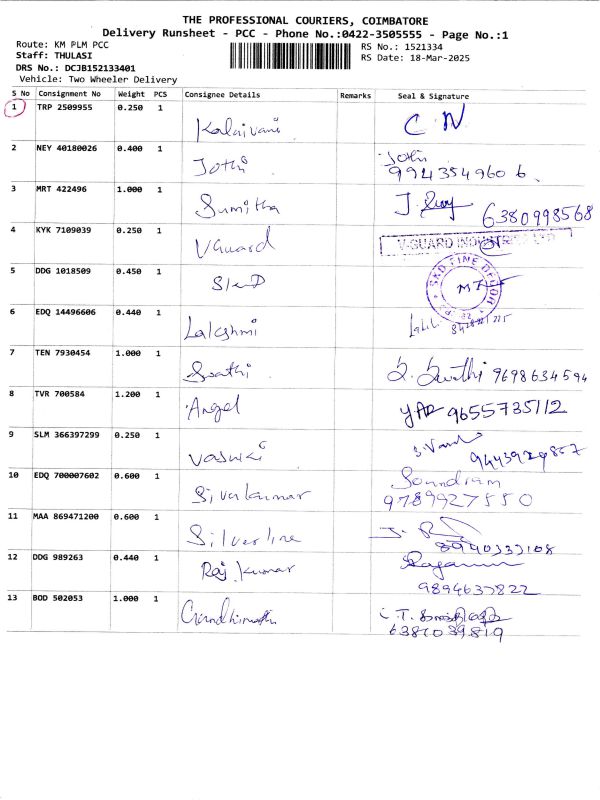 THE PROFESSIONAL COURIERS, COIMBATORE
Delivery Runsheet - PCC - Phone No.:0422-3505555 - Page No.:1
Route: KM PLM PCC RS No.: 1521334
Staff: THULASI RS Date: 18-Mar-2025
DRS No.: DCJB152133401
Vehicle: Two Wheeler Delivery
S No Consignment No Weight PCS Consignee Details Remarks Seal & Signature
1 TRP 2509955 0.250 1 Kalaivani C N
2 NEY 40180026 0.400 1 Jothi Jothi
9943549606.
3 MRT 422496 1.000 1 Sumitha J.
6380998568
4 KYK 7109039 0.250 1 VGuard V-GUARD INDUSTRIES LTD
5 DDG 1018509 0.450 1
6 EDQ 14496606 0.440 1 Lakshmi
7 TEN 7930454 1.000 1 Swathi 9698634594
8 TVR 700584 1.200 1 Angel 9655735112
9 SLM 366397299 0.250 1 Vasuki
10 EDQ 700007602 0.600 1 Sivakumar Soundiram
9789927550
11 MAA 869471200 0.600 1 Silverline J.
12 DDG 989263 0.440 1 Raj kumar
9894637822
13 BOD 502053 1.000 1